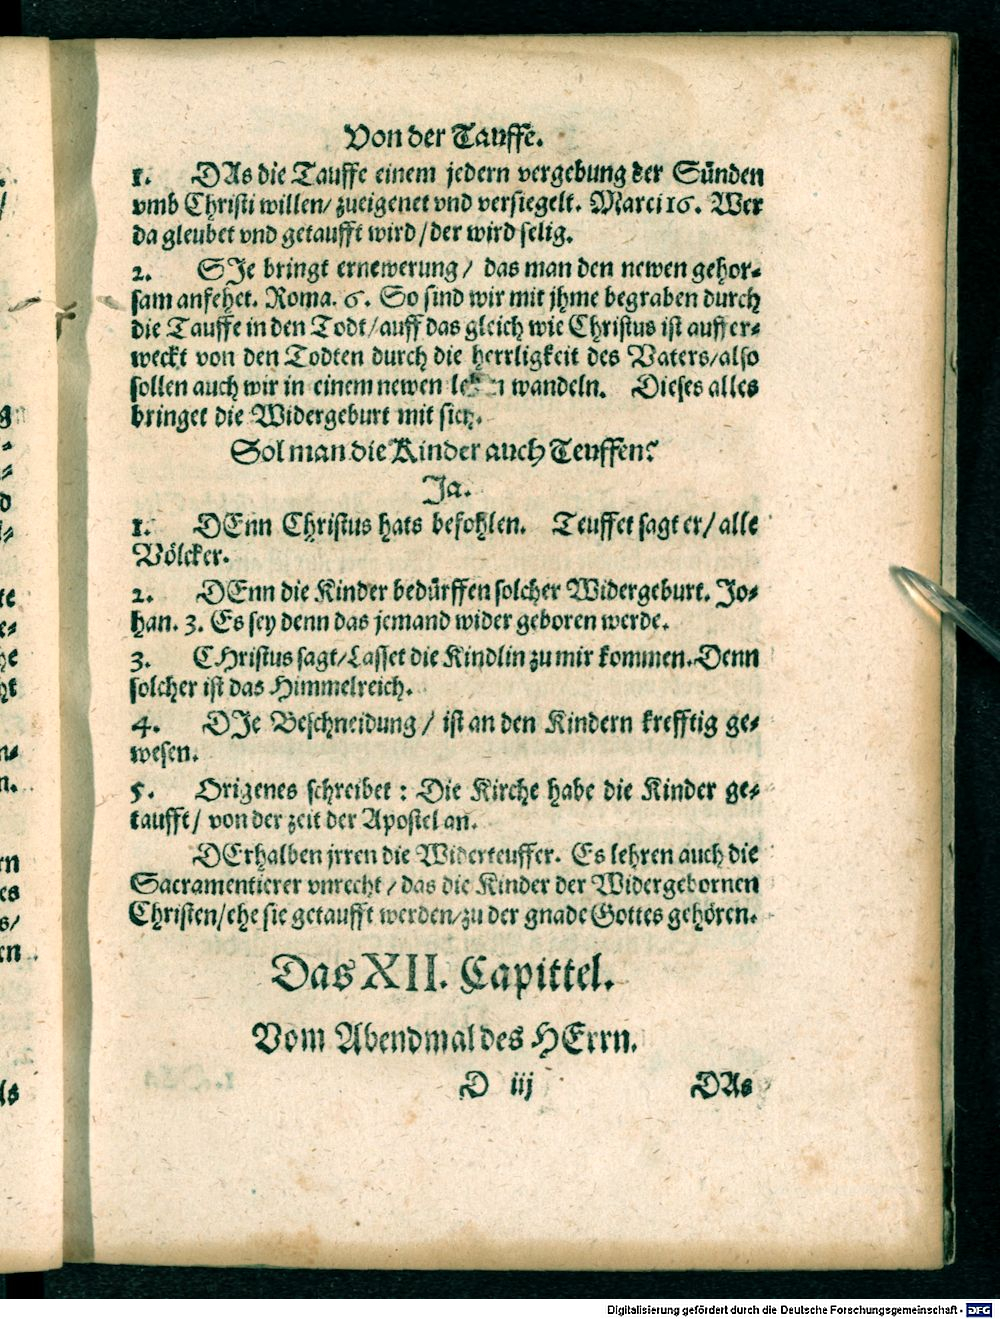 Von der Tauffe.
1. DAs die Tauffe einem jedern vergebung der Sünden
vmb Christi willen/ zueigenet vnd versiegelt. Marci 16. Wer
da gleubet vnd getaufft wird/ der wird selig.
2. SJe bringt ernewerung/ das man den newen gehor-
sam anfehet. Roma. 6. So sind wir mit jhme begraben durch
die Tauffe in den Todt/ auff das gleich wie Christus ist auff er-
weckt von den Todten durch die herrligkeit des Vaters/ also
sollen auch wir in einem newen leben wandeln. Dieses alles
bringet die Widergeburt mit sich.
Sol man die Kinder auch Teuffen?
Ja.
1. DEnn Christus hats befohlen. Teuffet sagt er/ alle
Völcker.
2. DEnn die Kinder bedürffen solcher Widergeburt. Jo-
han. 3. Es sey denn das jemand wider geboren werde.
3. CHristus sagt/ Lasset die Kindlin zu mir kommen. Denn
solcher ist das Himmelreich.
4. DJe Beschneidung/ ist an den Kindern krefftig ge-
wesen.
5. Origenes schreibet: Die Kirche habe die Kinder ge-
taufft/ von der zeit der Apostel an.
DErhalben jrren die Widerteuffer. Es lehren auch die
Sacramentierer vnrecht/ das die Kinder der Widergebornen
Christen/ ehe sie getaufft werden/ zu der gnade Gottes gehören.
Das XII. Capittel.
Vom Abendmal des HErrn.
D iij DAs
Digitalisierung gefördert durch die Deutsche Forschungsgemeinschaft - DFG